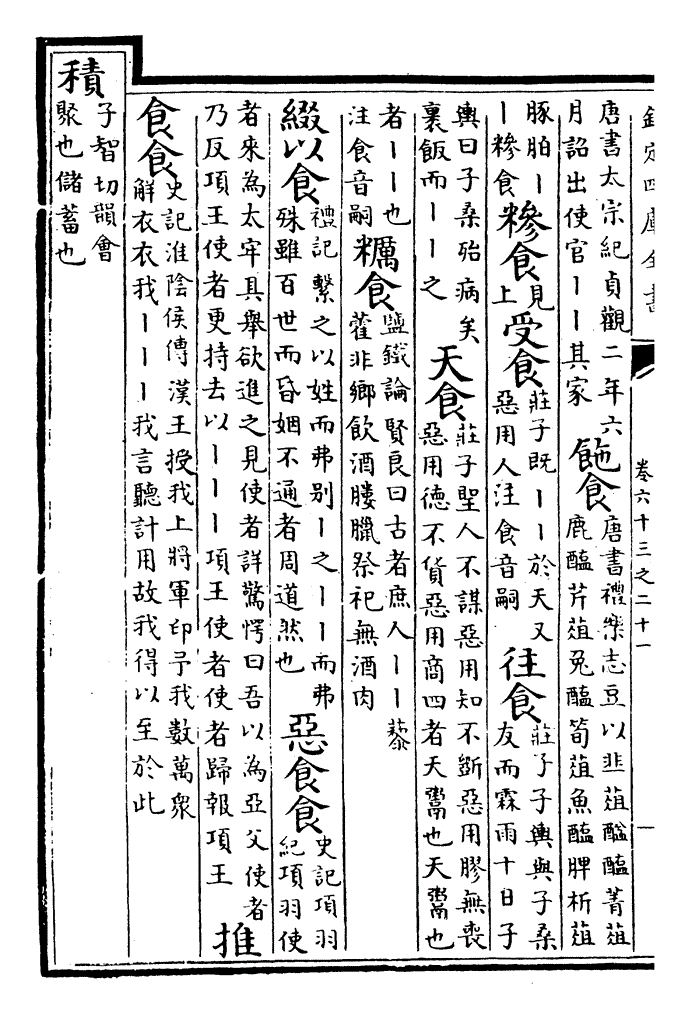 欽定四庫全書
卷六十三之二十一
唐書太宗紀貞觀二年六
月詔出使官丨丨其家
食
唐書禮樂志豆以韭菹醓醢菁菹
鹿醢芹菹兔醢筍菹魚醢脾析菹
豚胉丨
丨糝食
糝食
見
上
受食
莊子既丨丨於天又
惡用人注食音嗣
往食
莊子子輿與子桑
友而霖雨十日子
輿曰子桑殆病矣
裹飯而丨丨之
天食
莊子聖人不謀惡用知不斲惡用膠無喪
惡用德不貨惡用商四者天鬻也天鬻也
者丨丨也
注食音嗣
糲食
鹽鐵論賢良曰古者庶人丨丨藜
藿非鄉飲酒膢臘祭祀無酒肉
綴以食
禮記繫之以姓而弗别丨之丨丨而弗
殊雖百世而昏姻不通者周道然也
惡食食
史記項羽
紀項羽使
者來為太牢具舉欲進之見使者詳驚愕曰吾以為亞父使者
乃反項王使者更持去以丨丨丨項王使者使者歸報項王
推
食食
史記淮陰侯傳漢王授我上將軍印予我數萬衆
解衣衣我丨丨丨我言聽計用故我得以至於此
積
子智切韻會
聚也儲蓄也